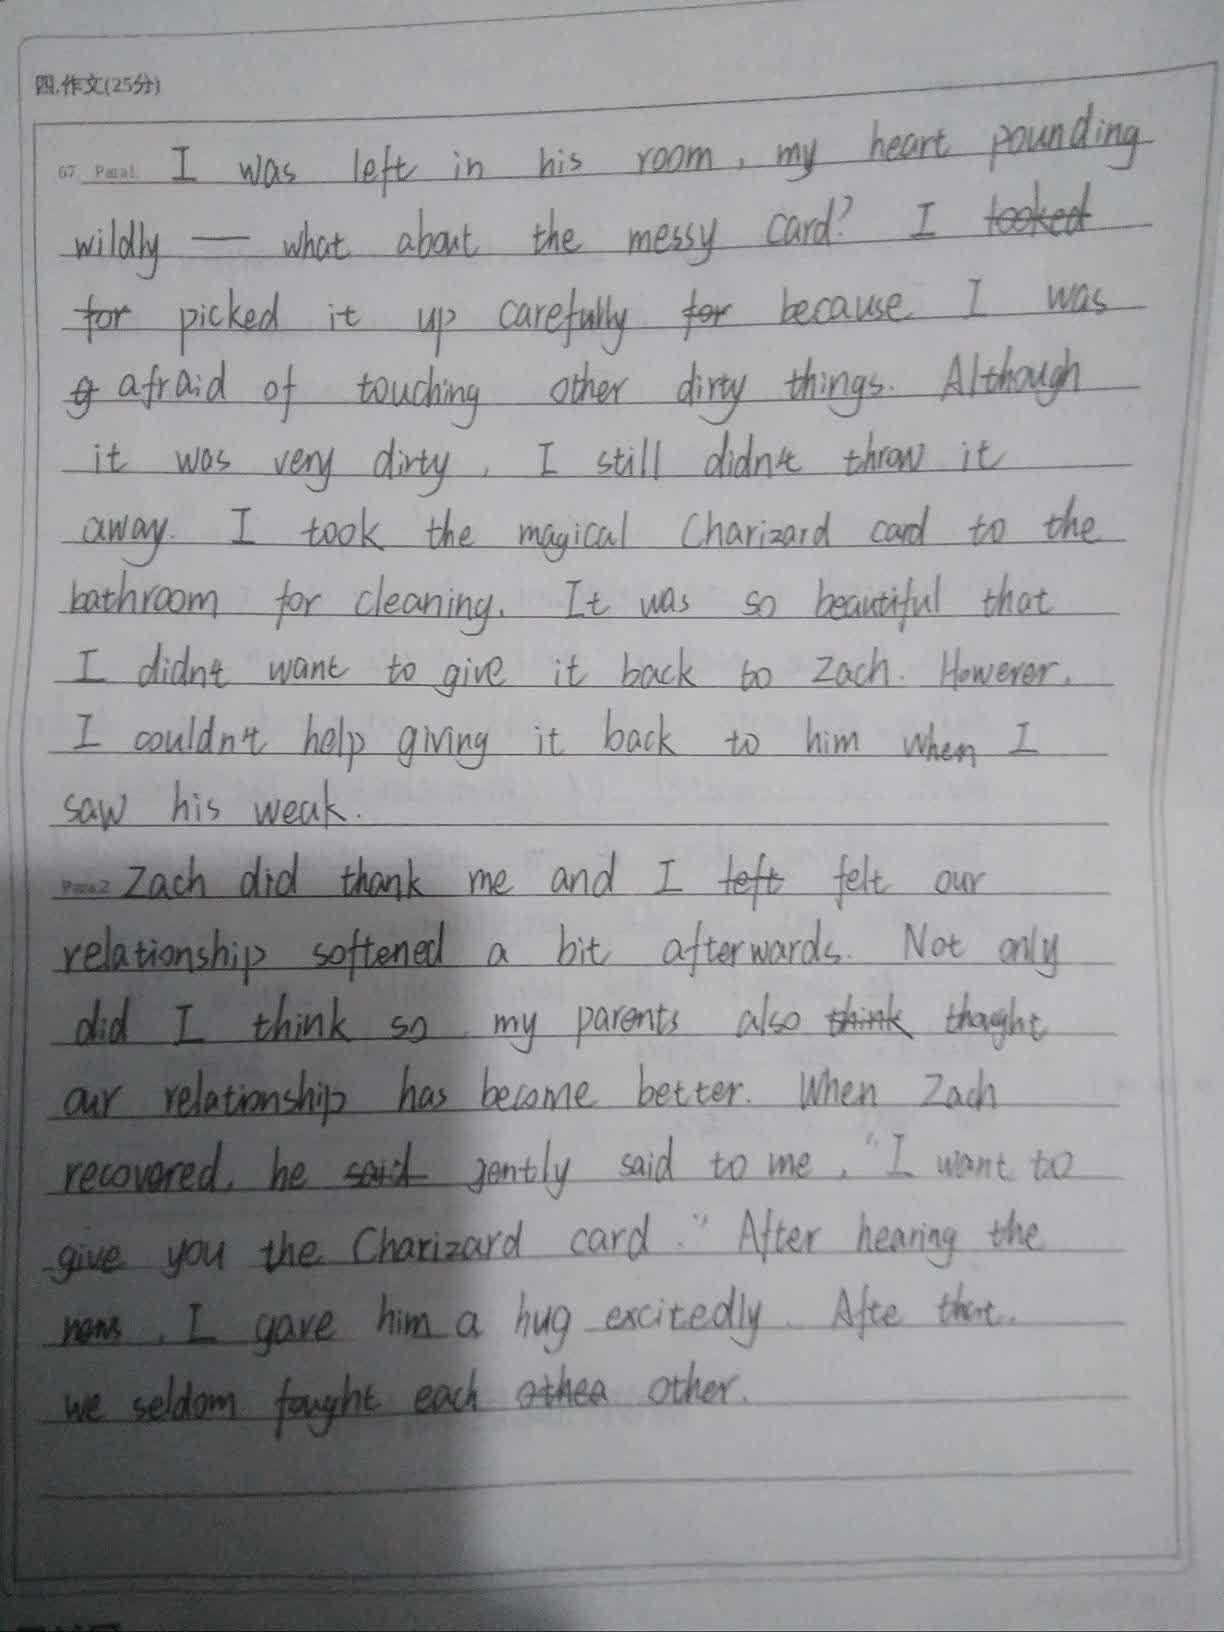 四.作文(25分)
67 Para1. I was left in his room, my heart pounding
wildly — what about the messy card? I looked
for picked it up carefully for because I was
afraid of touching other dirty things. Although
it was very dirty, I still didn't throw it
away. I took the magical Charizard card to the
bathroom for cleaning. It was so beautiful that
I didn't want to give it back to Zach. However,
I couldn't help giving it back to him when I
saw his weak.
Para2 Zach did thank me and I left felt our
relationship softened a bit afterwards. Not only
did I think so, my parents also think thought
our relationship has become better. When Zach
recovered, he said gently said to me, "I want to
give you the Charizard card." After hearing the
news, I gave him a hug excitedly. Afte that,
we seldom fought each othea other.